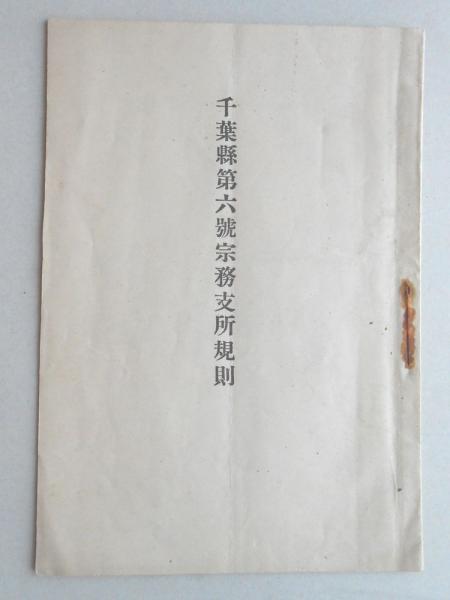 千葉縣第六號宗務支所規則